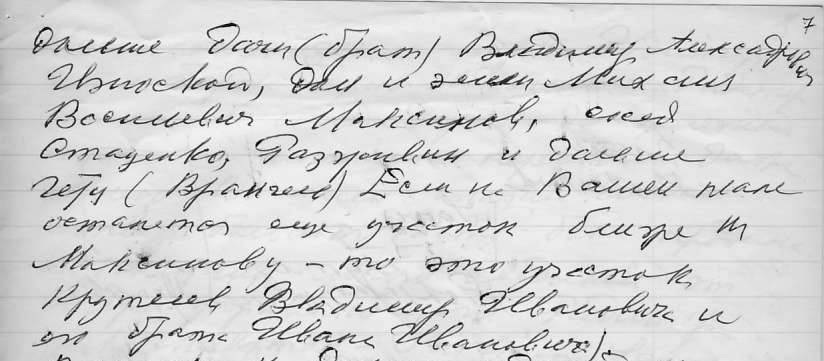 7
дальше дачи (брат) Владимир Александрович
дом и земли Михаил
Василевич Максимов,
Стаценко, и дальше
(Врангель) Если на Вашем плане
останется еще участок ближе к
Максимову – то это участок
Владимир Ивановича и
его брата Ивана Ивановича).